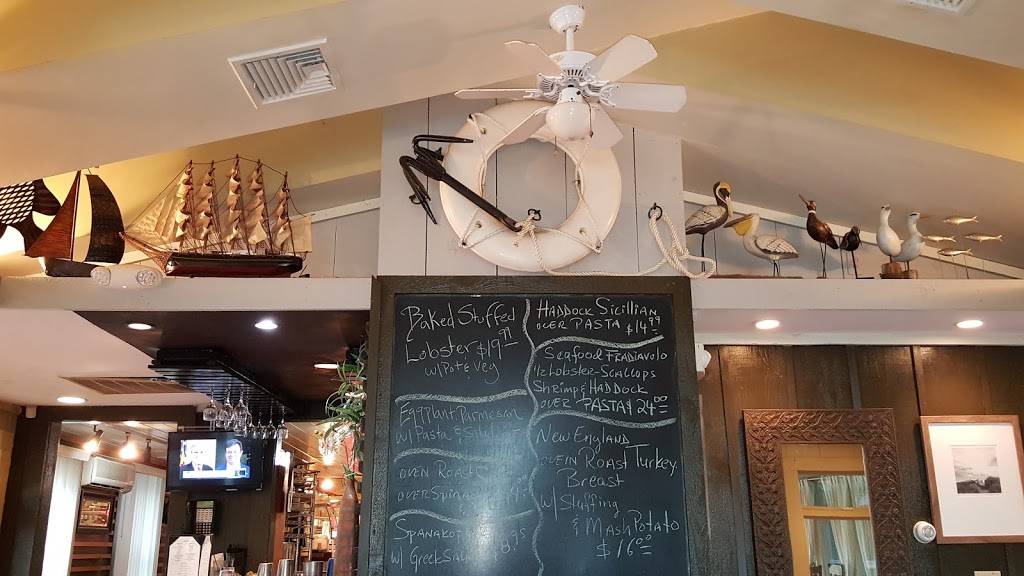 Baked Stuffed
Lobster $19.99
w/Pot & Veg
Eggplant Parmesan
w/ Pasta &
Oven Roast
over
Spanako
w/ Greek
Haddock Sicillian
over Pasta $14.99
Seafood Fradiavolo
1/2 Lobster-Scallops
Shrimp & Haddock
over Pasta $24.00
New England
Ovein Roast Turkey
Breast
w/ Stuffing
& Mash Potato
$16.00